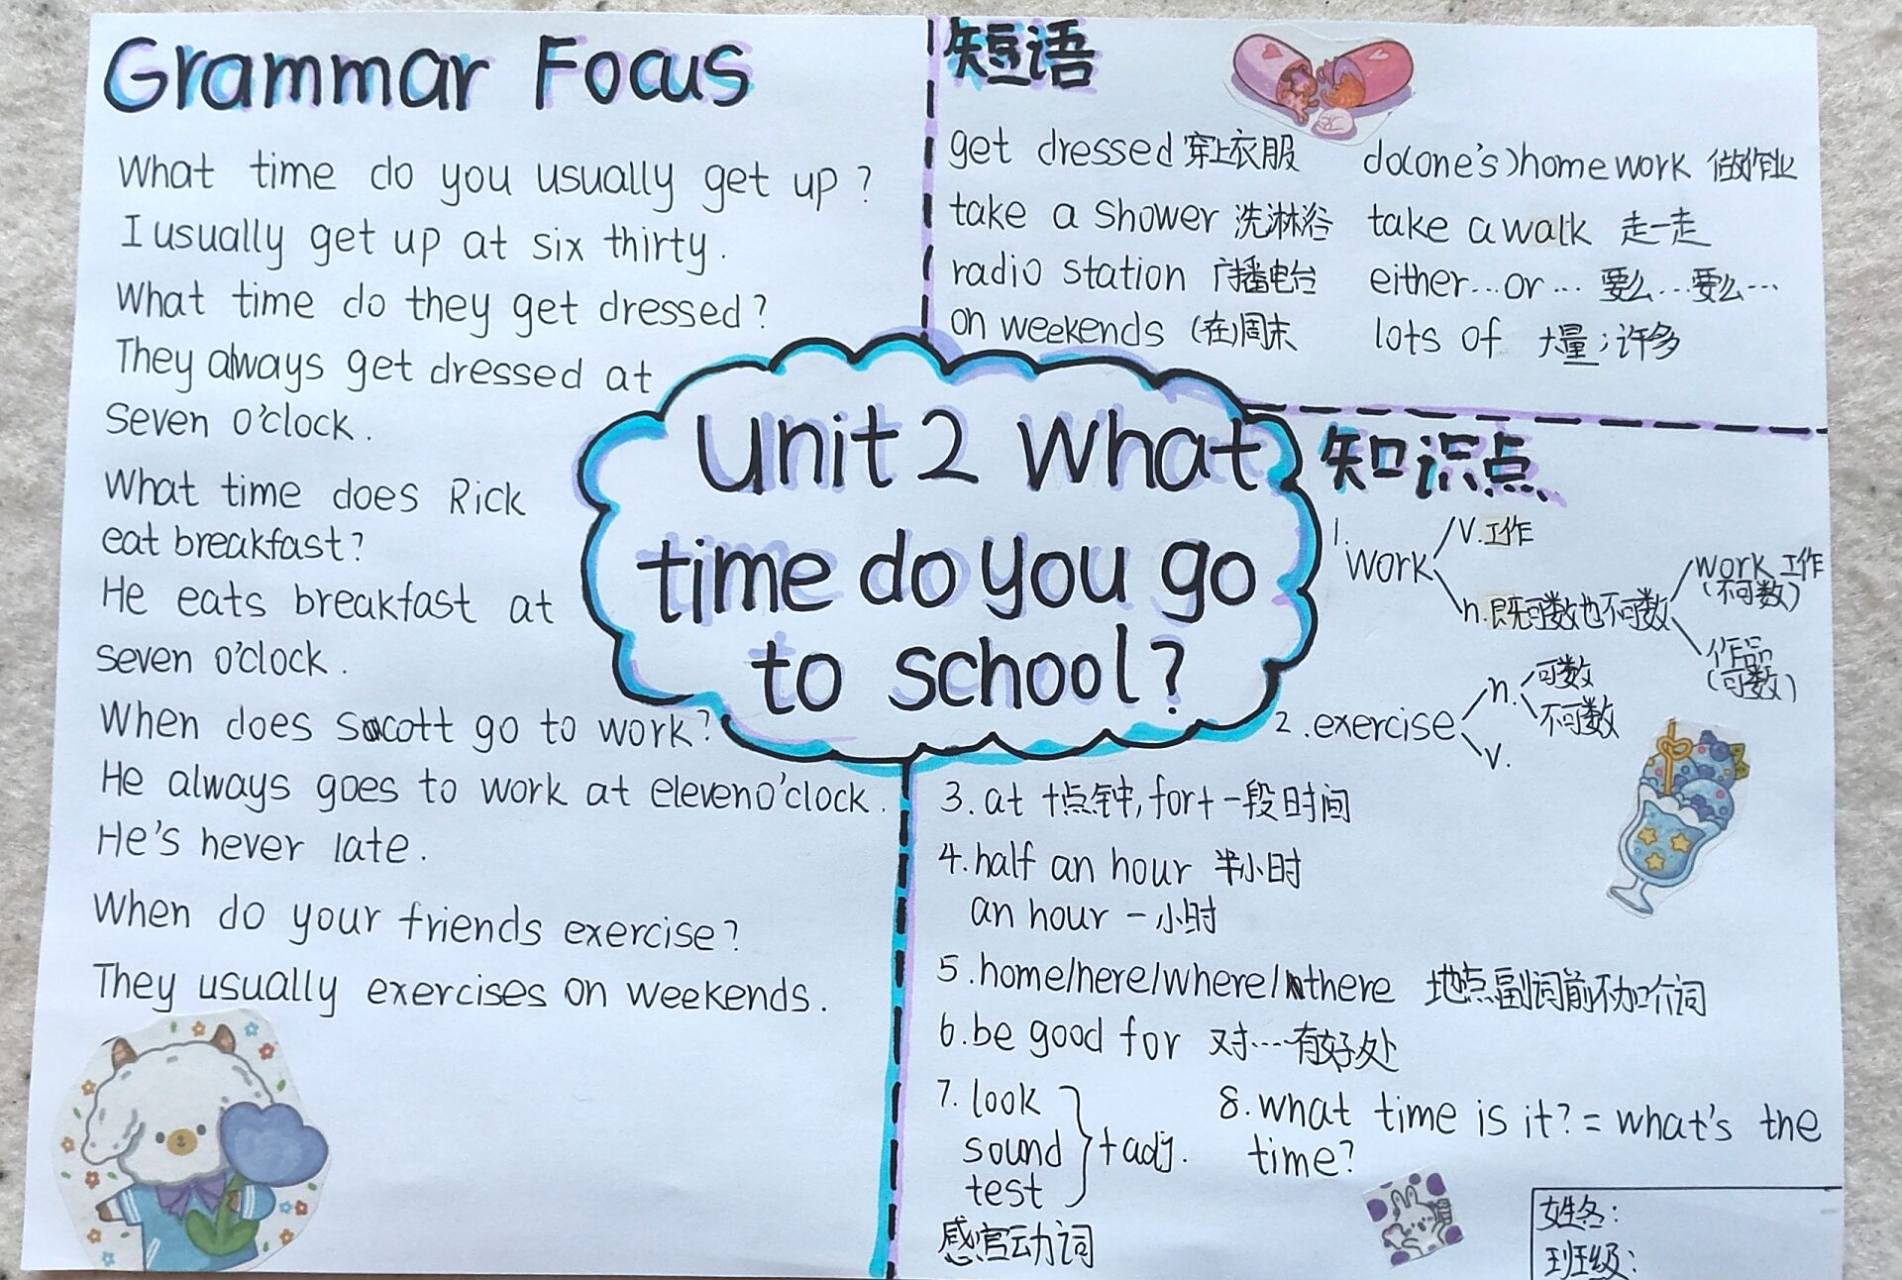 Grammar Focus
What time do you usually get up?
I usually get up at six thirty.
What time do they get dressed?
They always get dressed at
seven o'clock.
What time does Rick
eat breakfast?
He eats breakfast at
seven o'clock.
When does Sacott go to work?
He always goes to work at eleven o'clock.
He's never late.
When do your friends exercise?
They usually exercises on weekends.
Unit 2 What
time do you go
to school?
短语
get dressed 穿上衣服
take a shower 洗淋浴
radio station 广播电台
on weekends (在)周末
do(one's)homework 做作业
take a walk 走一走
either…or… 要么…要么…
lots of 大量;许多
知识点
1. work
v.工作
n.既可数也不可数
work 工作
(不可数)
作品
(可数)
2.exercise
n.
可数
不可数
v.
3.at+点钟,for+一段时间
4.half an hour 半小时
an hour 一小时
5.home/here/where/there 地点副词前不加介词
6.be good for 对…有好处
7.look
sound
test
+adj.
感官动词
8.what time is it?=what's the
time?
姓名:
班级: